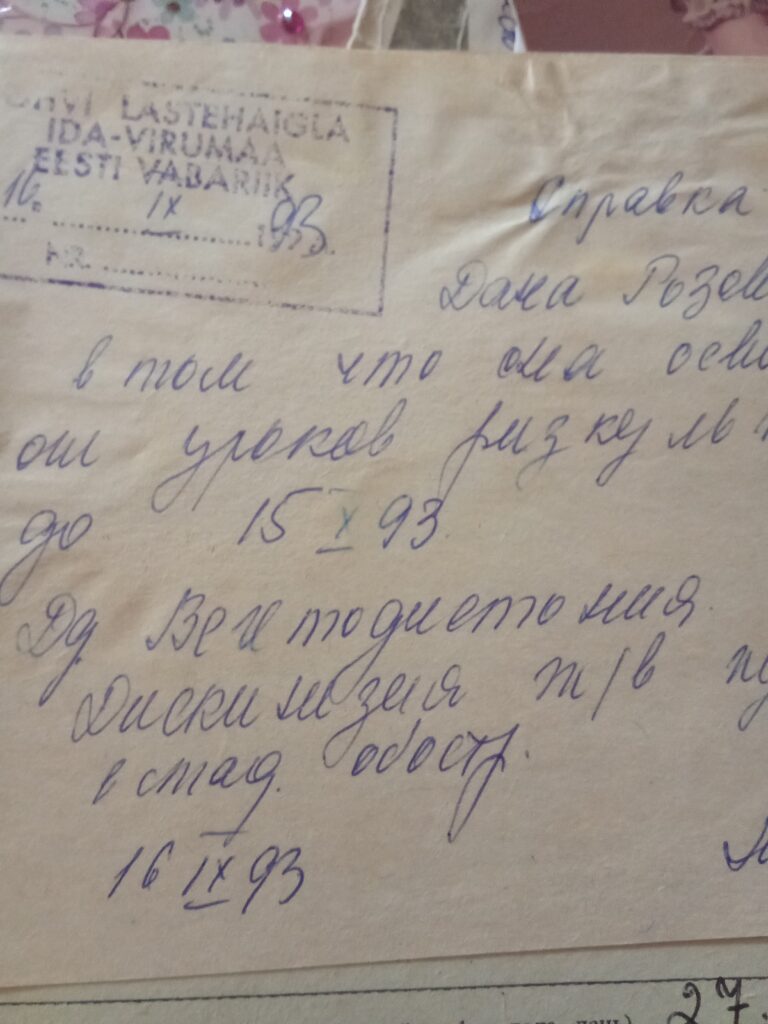 LASTEHAIGLA
IDA-VIRUMAA
EESTI VABARIIK
16. IX 1993.
NR.
Справка
Дана Розов
в том что она осв
от уроков физкуль
до 15 X 93
Дз Вегетодистония.
Дискинезия ж/в п
в стад. обостр.
16 IX 93
27.